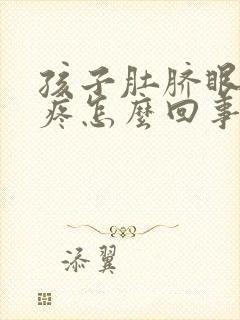 孩子肚脐眼
疼怎麽回事
添翼